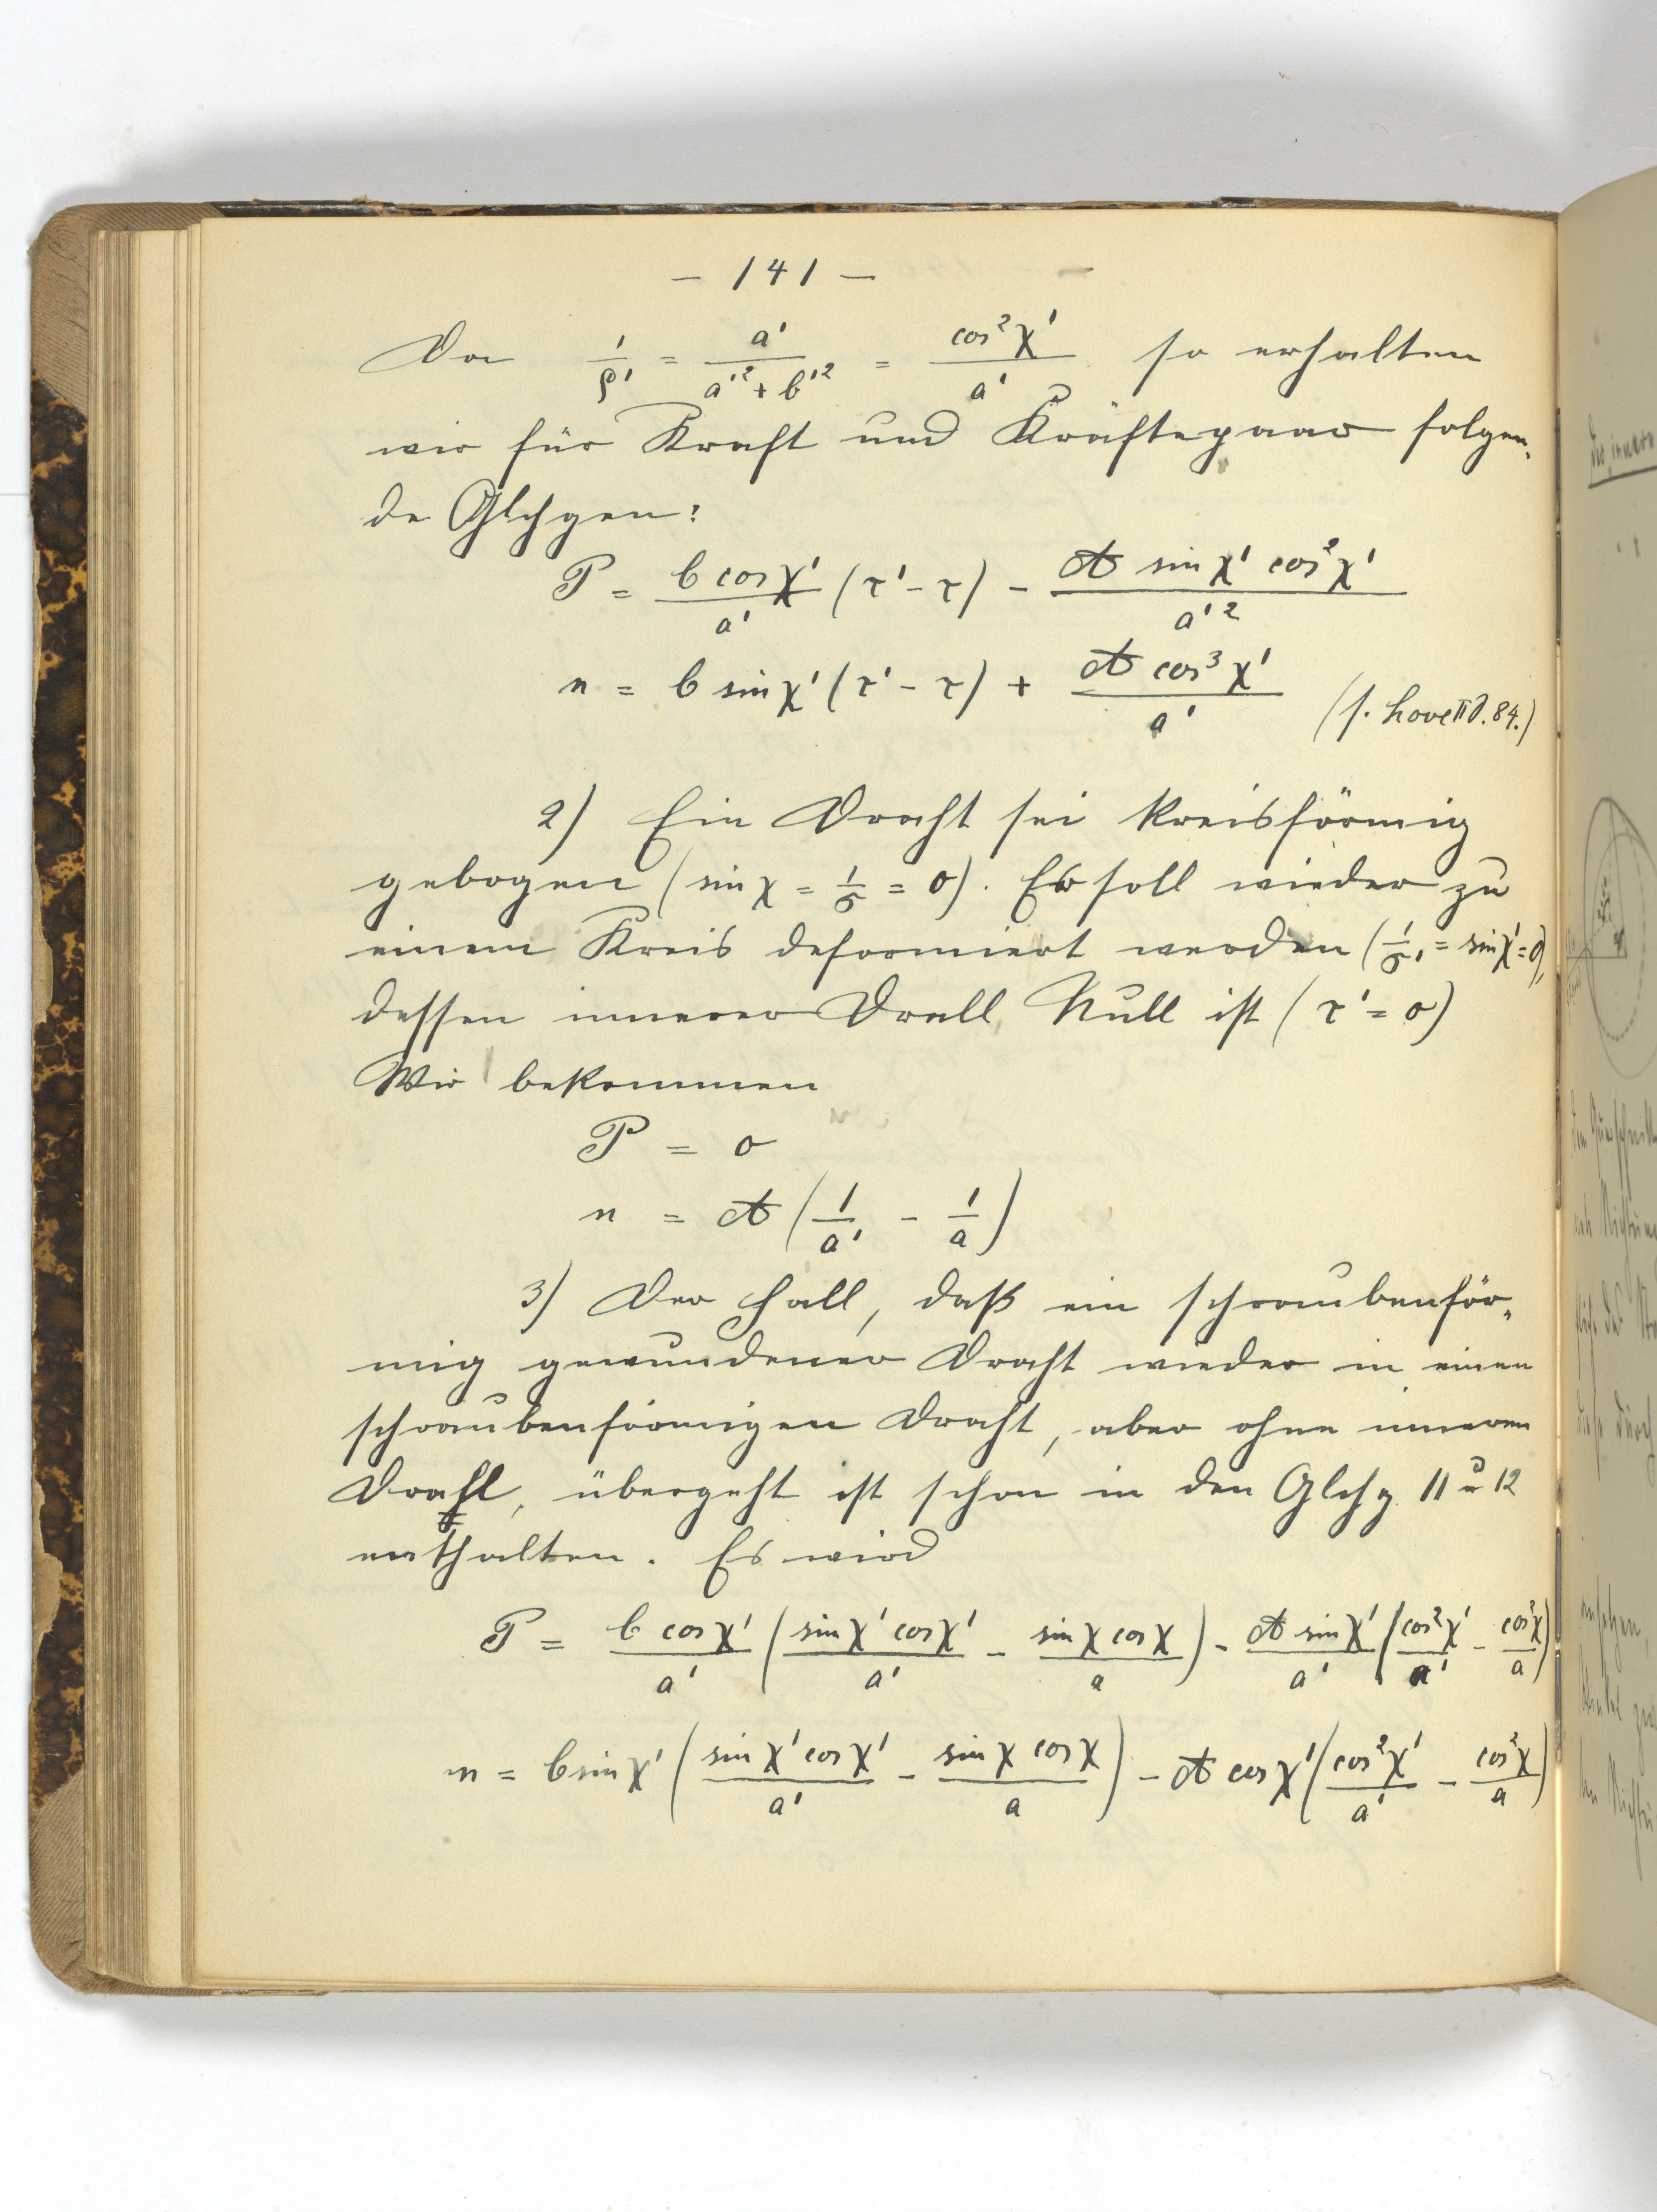 — 141 —
Da 1/ρ' = a'/(a'² + b'²) = cos²χ'/a' so erhalten
wir für Kraft und Kräftepaar folgen-
de Glchgen:
P = (b cosχ'/a') (τ' - τ) - (A sinχ' cos²χ')/a'²
n = b sinχ' (τ' - τ) + (A cos³χ')/a' (s. Love II 84.)
2) Ein Draht sei kreisförmig
gebogen (sin χ = 1/σ = 0). Er soll wieder zu
einem Kreis deformiert werden (1/σ' = sinχ' = 0),
dessen innerer Drall Null ist (τ' = 0)
Wir bekommen
P = 0
n = A (1/a' - 1/a)
3) Der Fall, daß ein schraubenför-
mig gewundener Draht wieder in einen
schraubenförmigen Draht, aber ohne inneren
Drall, übergeht ist schon in den Glchg. 11 u 12
enthalten. Es wird
P = (b cosχ'/a') (sinχ' cosχ'/a' - sinχ cosχ/a) - (A sinχ'/a') (cos²χ'/a' - cos²χ/a)
n = b sinχ' (sinχ' cosχ'/a' - sinχ cosχ/a) - A cosχ' (cos²χ'/a' - cos²χ/a)